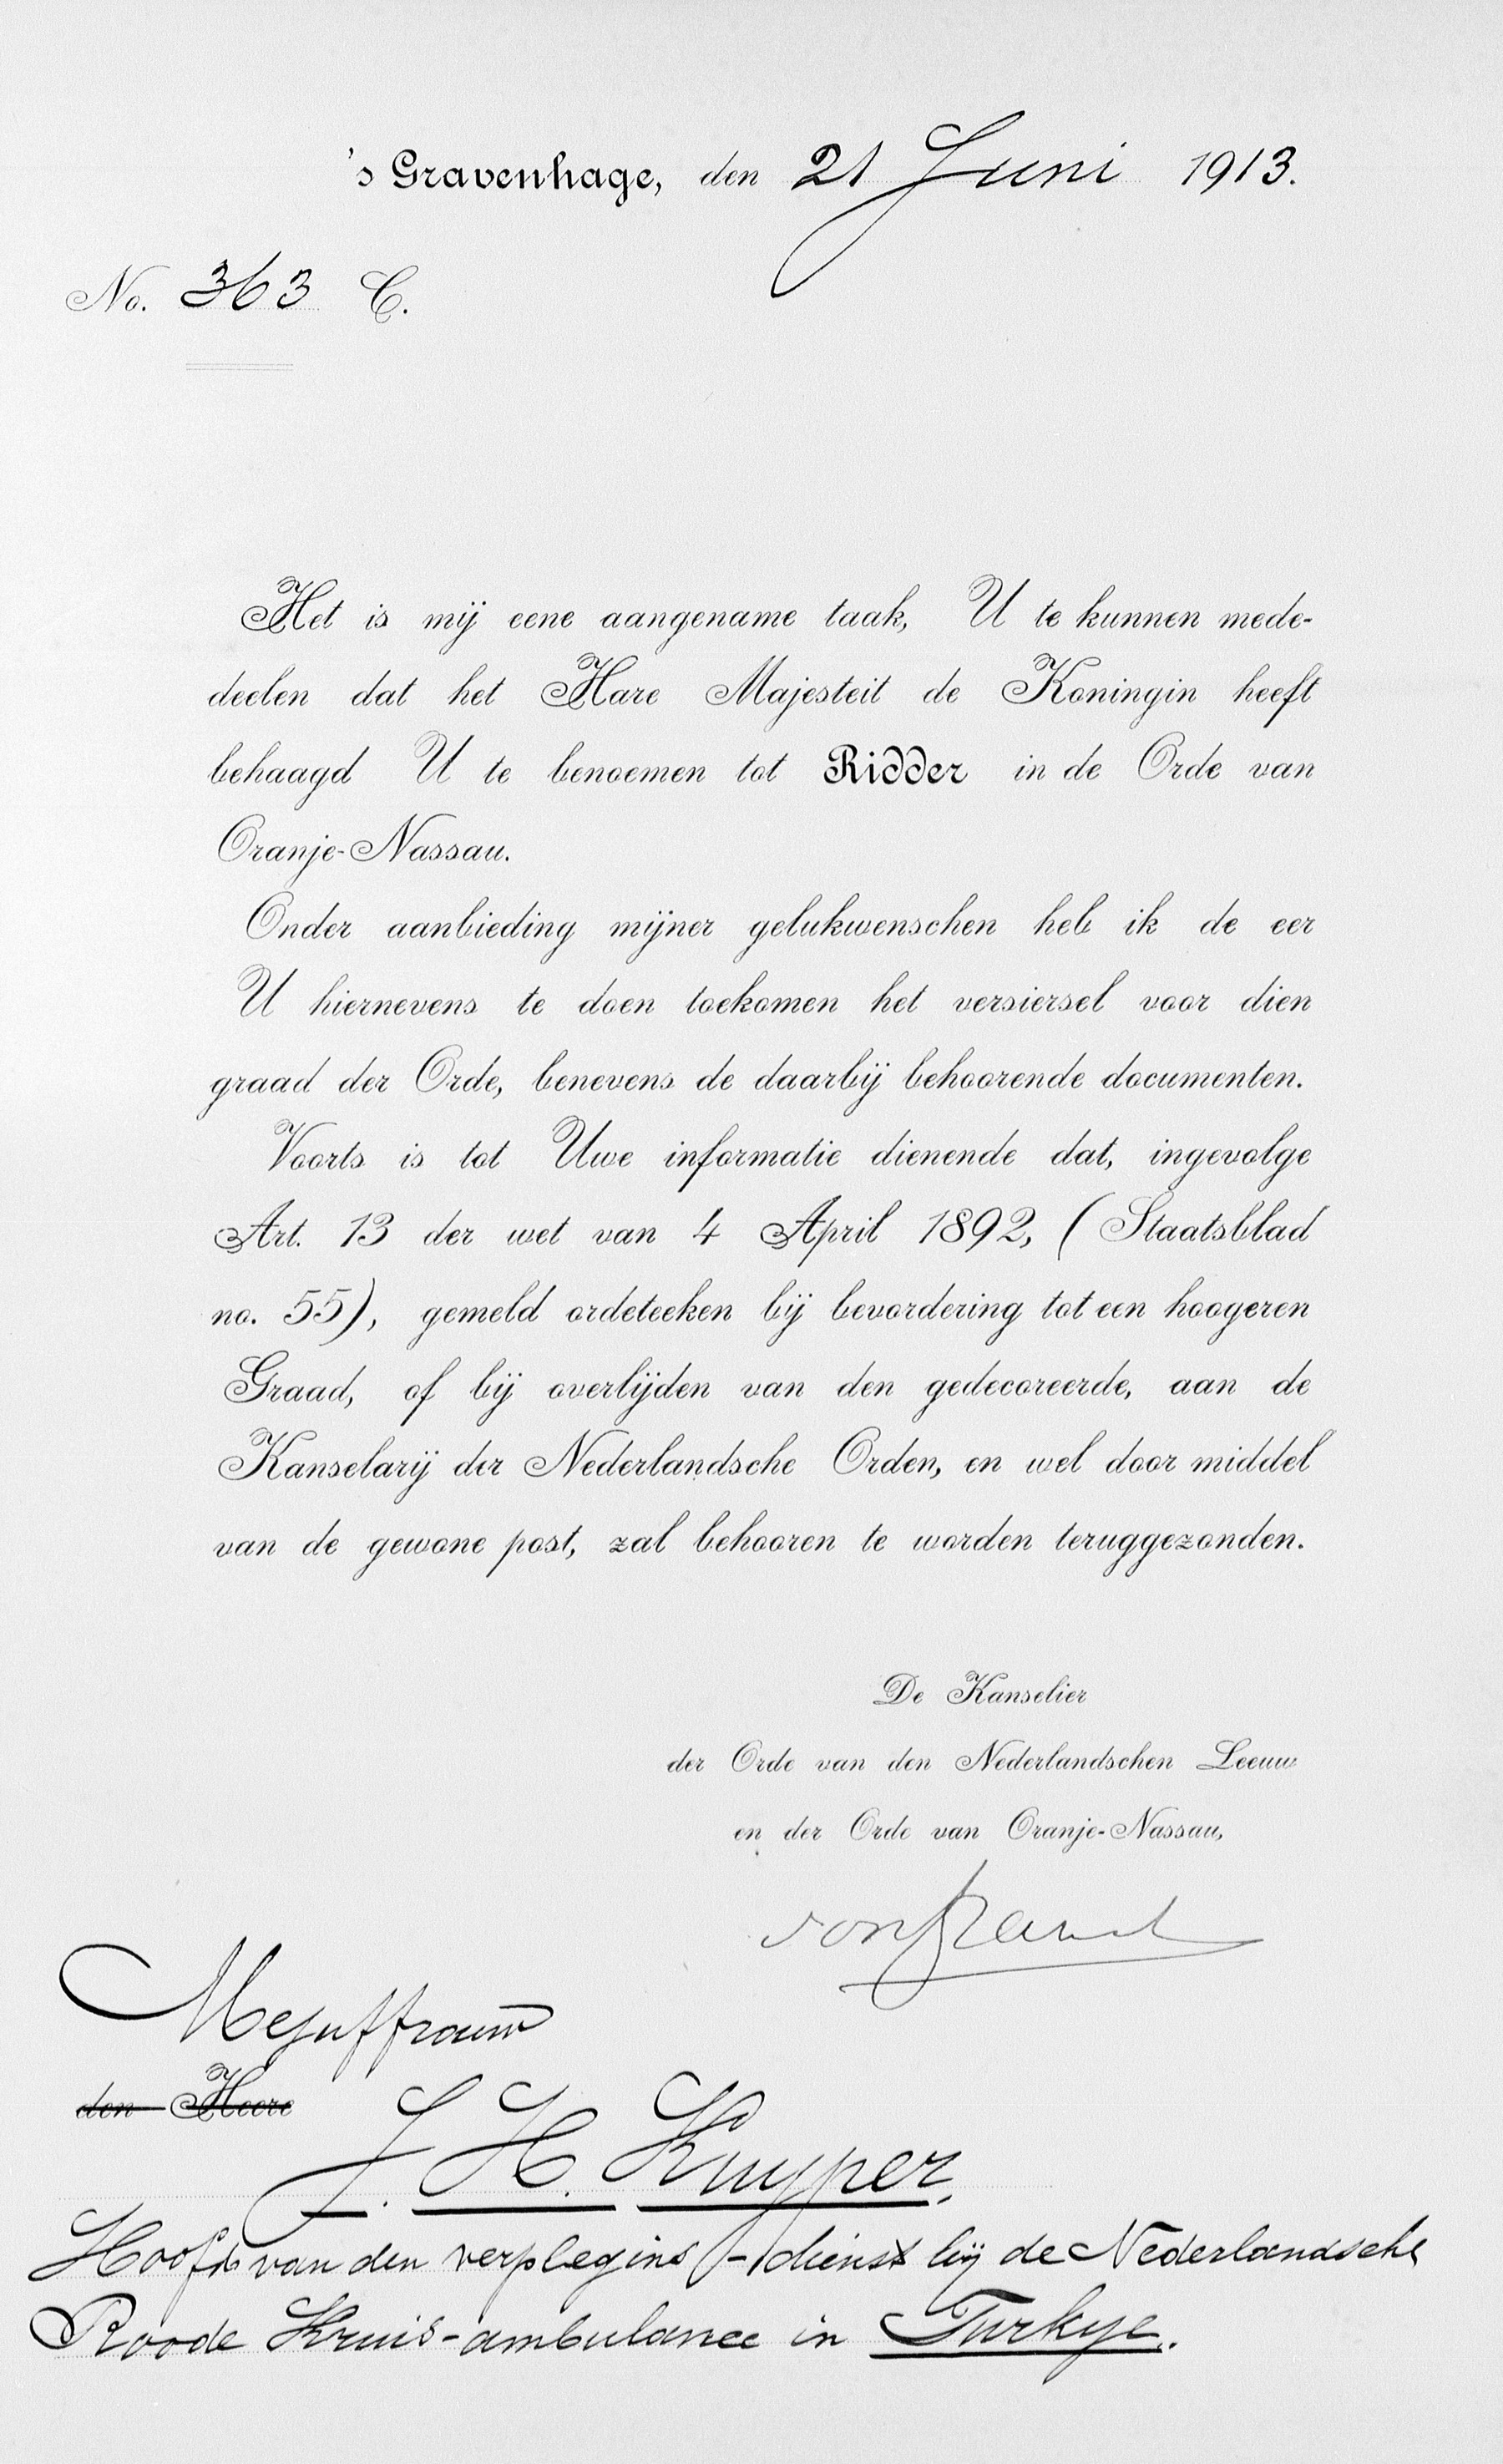 's Gravenhage, den 21 Juni 1913.
No. 363 C.
Het is mij eene aangename taak, U te kunnen mede-
deelen dat het Hare Majesteit de Koningin heeft
behaagd U te benoemen tot Ridder in de Orde van
Oranje-Nassau.
Onder aanbieding mijner gelukwenschen heb ik de eer
U hiernevens te doen toekomen het versiersel voor dien
graad der Orde, benevens de daarbij behoorende documenten.
Voorts is tot Uwe informatie dienende dat, ingevolge
Art. 13 der wet van 4 April 1892, (Staatsblad
no. 55), gemeld ordeteeken bij bevordering tot een hoogeren
Graad, of bij overlijden van den gedecoreerde, aan de
Kanselarij der Nederlandsche Orden, en wel door middel
van de gewone post, zal behooren te worden teruggezonden.
De Kanselier
der Orde van den Nederlandschen Leeuw
en der Orde van Oranje-Nassau,
Mejuffrouw
den Heere
J. H. Kuyper,
Hoofd van den verplegings-dienst bij de Nederlandsche
Roode Kruis-ambulance in Turkye.